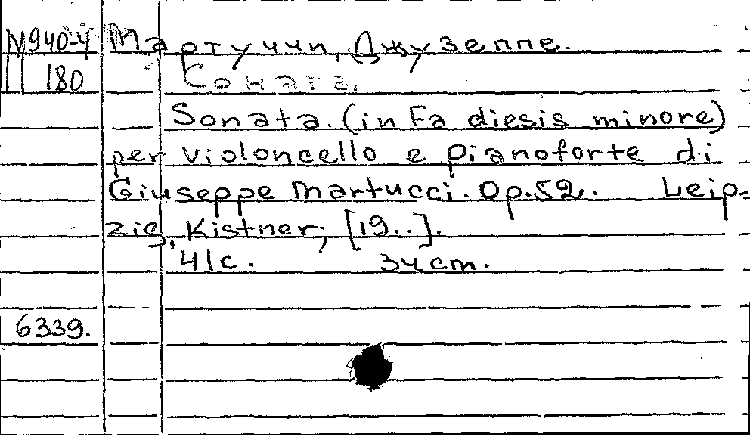 М940-4 Мартуччи, Джузеппе.
180 Соната.
Sonata. (in Fa diesis minore)
per violoncello e pianoforte di
Giuseppe Martucci. Op. 52. Leip=
zig, Kistner, [19..].
41 с. 34 cm.
6339.